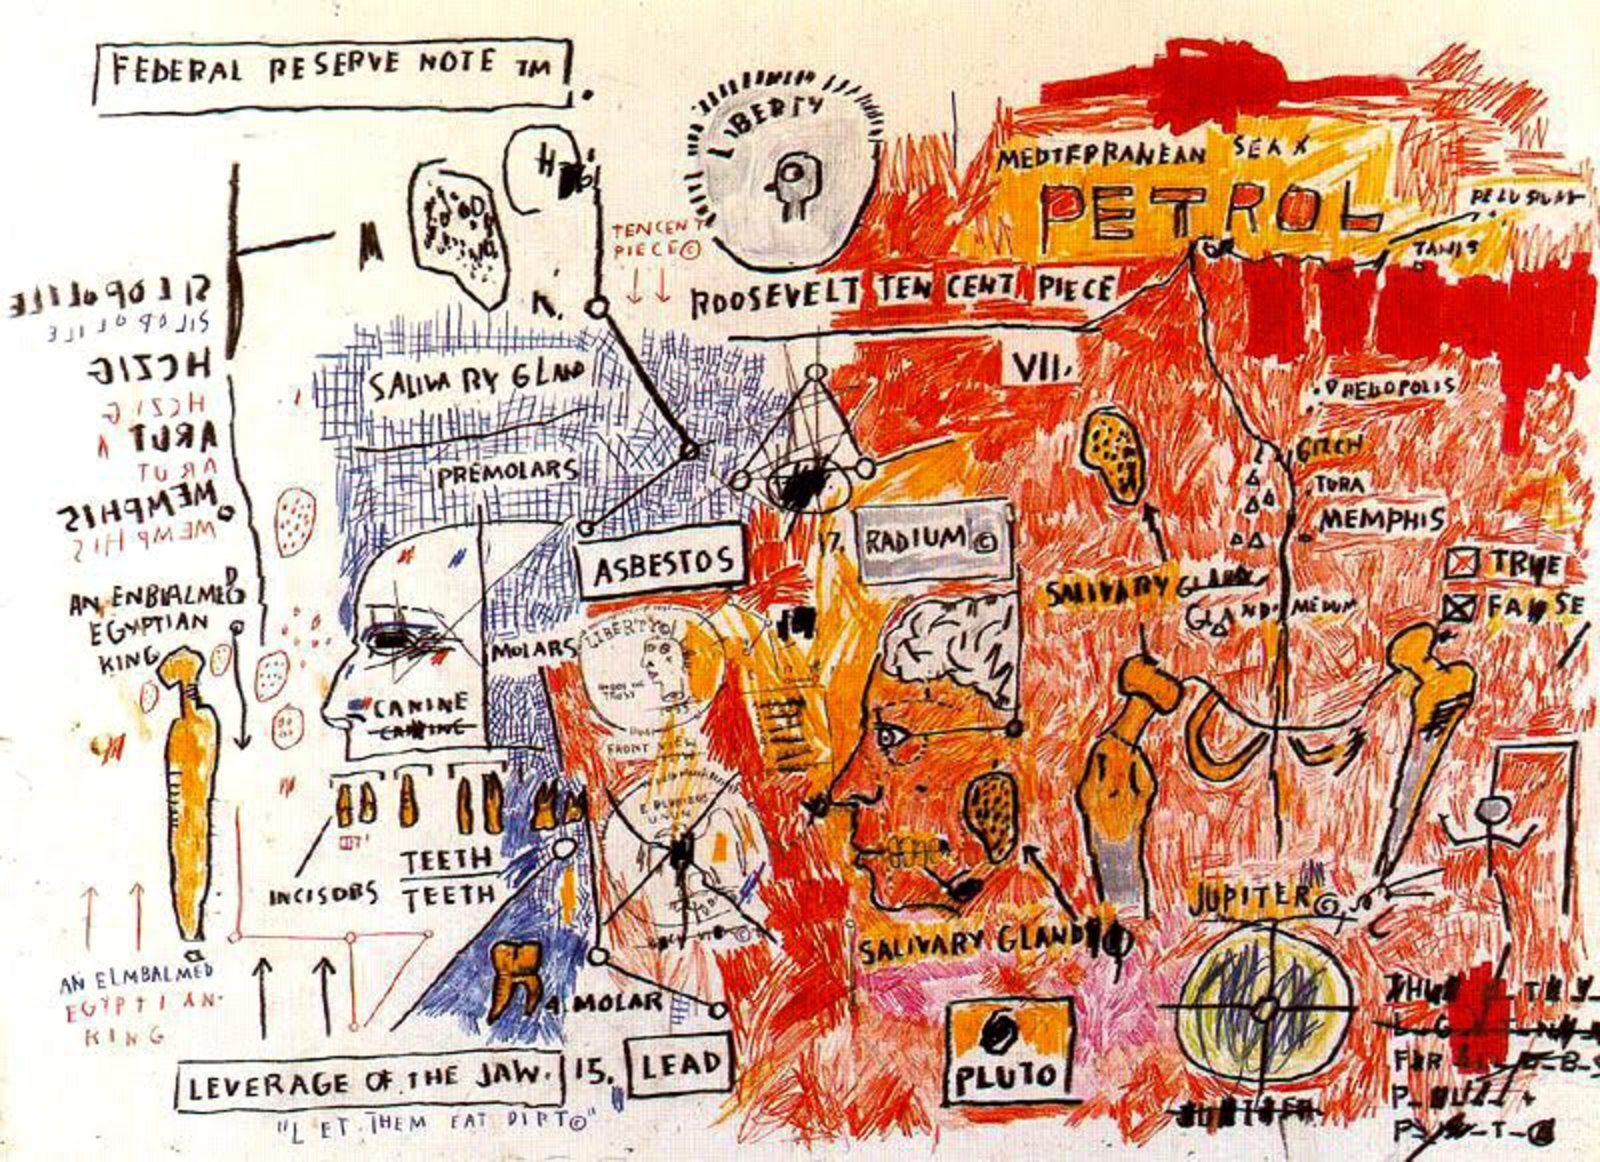 FEDERAL RESERVE NOTE TM
LIBERTY
MEDTERRANEAN SEA
PETROL
TANIS
TENCENT
PIECE©
ROOSEVELT TEN CENT PIECE
VII.
M
K.
SILOPOLILE
SILOPOLILE
HCZIG
HCZIG
ARUT
ARUT
MEMPHIS
MEMPHIS
SALIVARY GLAND
PREMOLARS
HELOPOLIS
GIZCH
TURA
MEMPHIS
ASBESTOS
17. RADIUM ©
TRUE
FALSE
SALIVARY GLAND
GLAND.
AN ENBIALMED
EGYPTIAN
KING
MOLARS
LIBERTY©
FRONT VIEW
CANINE
CANINE
E PLURIBUS
UNUM
TEETH
TEETH
INCISORS
JUPITER©
SALIVARY GLAND
AN ELMBALMED
EGYPTIAN.
KING
4. MOLAR
LEVERAGE OF THE JAW. 15. LEAD
PLUTO
"LET THEM EAT DIRT©"
JUPITER